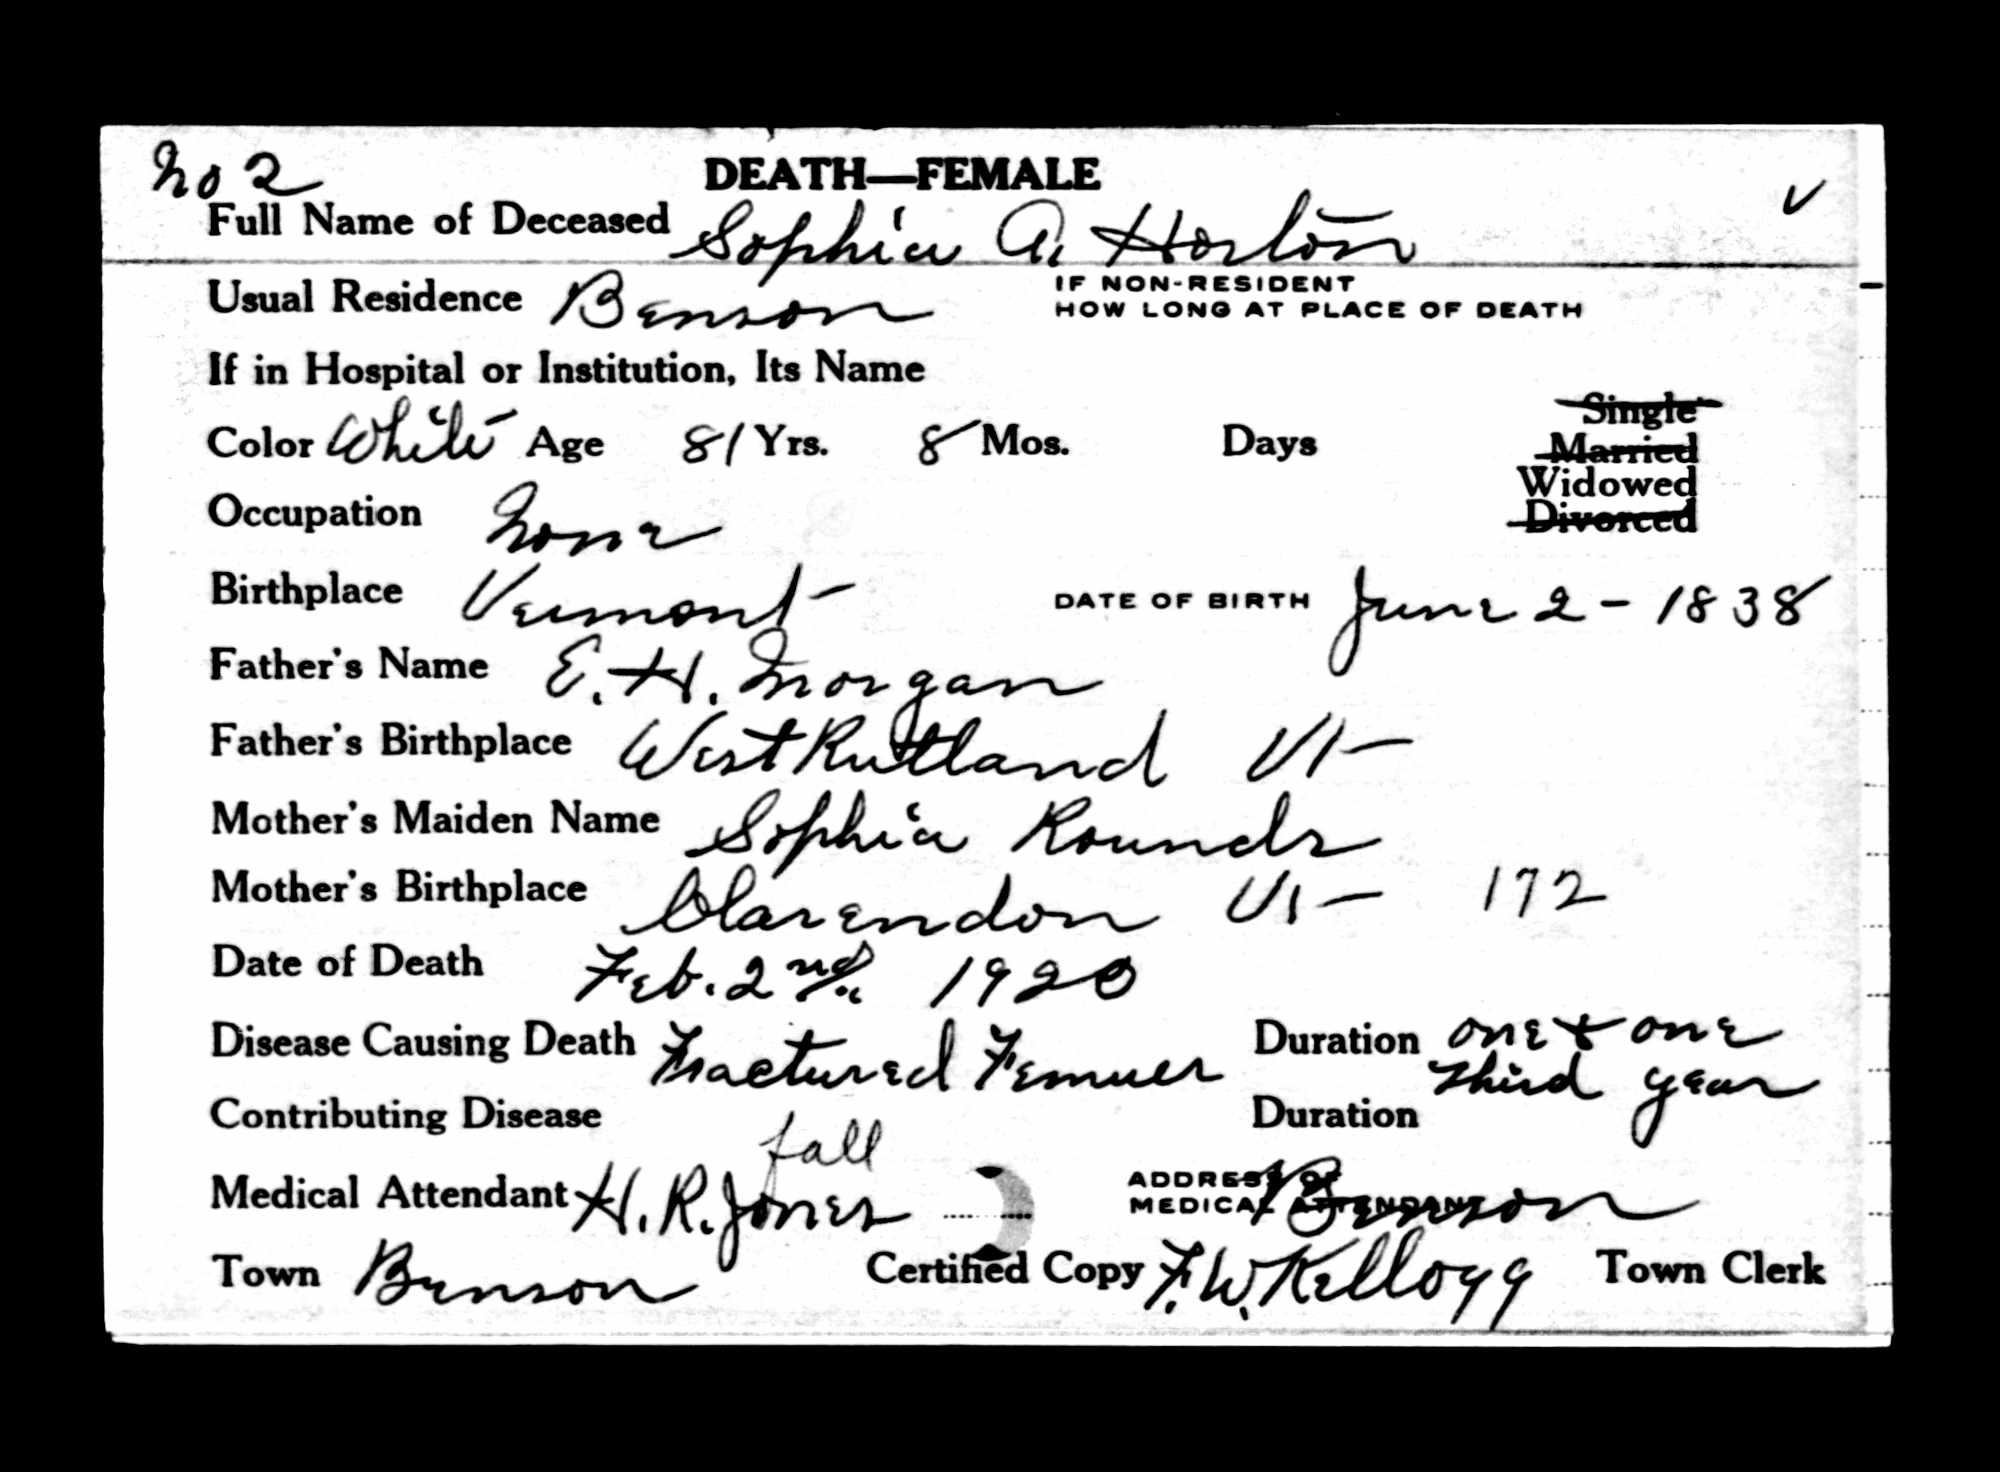 No 2
DEATH—FEMALE
Full Name of Deceased Sophia A. Horton
Usual Residence Benson IF NON-RESIDENT
HOW LONG AT PLACE OF DEATH
If in Hospital or Institution, Its Name
Single
Color White Age 81 Yrs. 8 Mos. Days
Married
Widowed
Occupation None
Divorced
Birthplace Vermont DATE OF BIRTH June 2 - 1838
Father's Name E. H. Morgan
Father's Birthplace West Rutland Vt-
Mother's Maiden Name Sophia Rounds
Mother's Birthplace Clarendon Vt- 172
Date of Death Feb. 2nd. 1920
Disease Causing Death Fractured Femuer Duration one & one
third year
Contributing Disease Duration
fall
Medical Attendant H. R. Jones ADDRESS OF
MEDICAL ATTENDANT Benson
Town Benson Certified Copy F. W. Kellogg Town Clerk